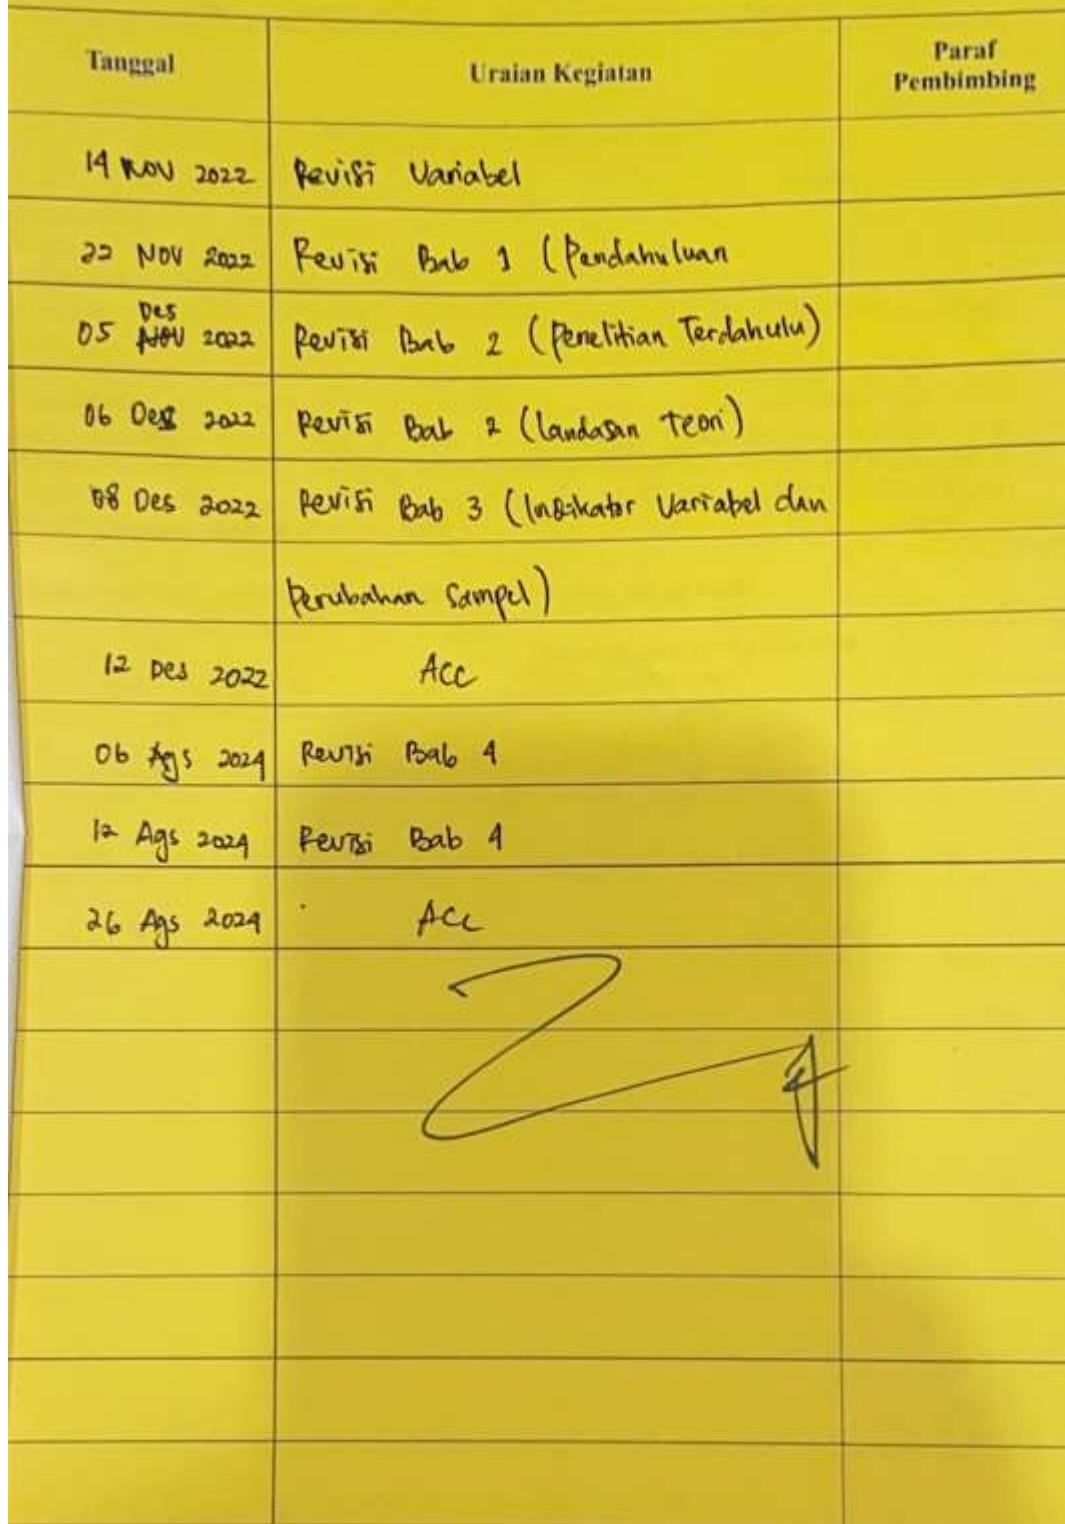 Tanggal Uraian Kegiatan Paraf Pembimbing
14 NOV 2022 Revisi Variabel
22 NOV 2022 Revisi Bab 1 (Pendahuluan
Des
05 NOV 2022 Revisi Bab 2 (Penelitian Terdahulu)
06 Des 2022 Revisi Bab 2 (landasan Teori)
08 Des 2022 Revisi Bab 3 (Indikator Variabel dan
Perubahan Sampel)
12 Des 2022 Acc
06 Ags 2024 Revisi Bab 4
12 Ags 2024 Revisi Bab 4
26 Ags 2024 Acc